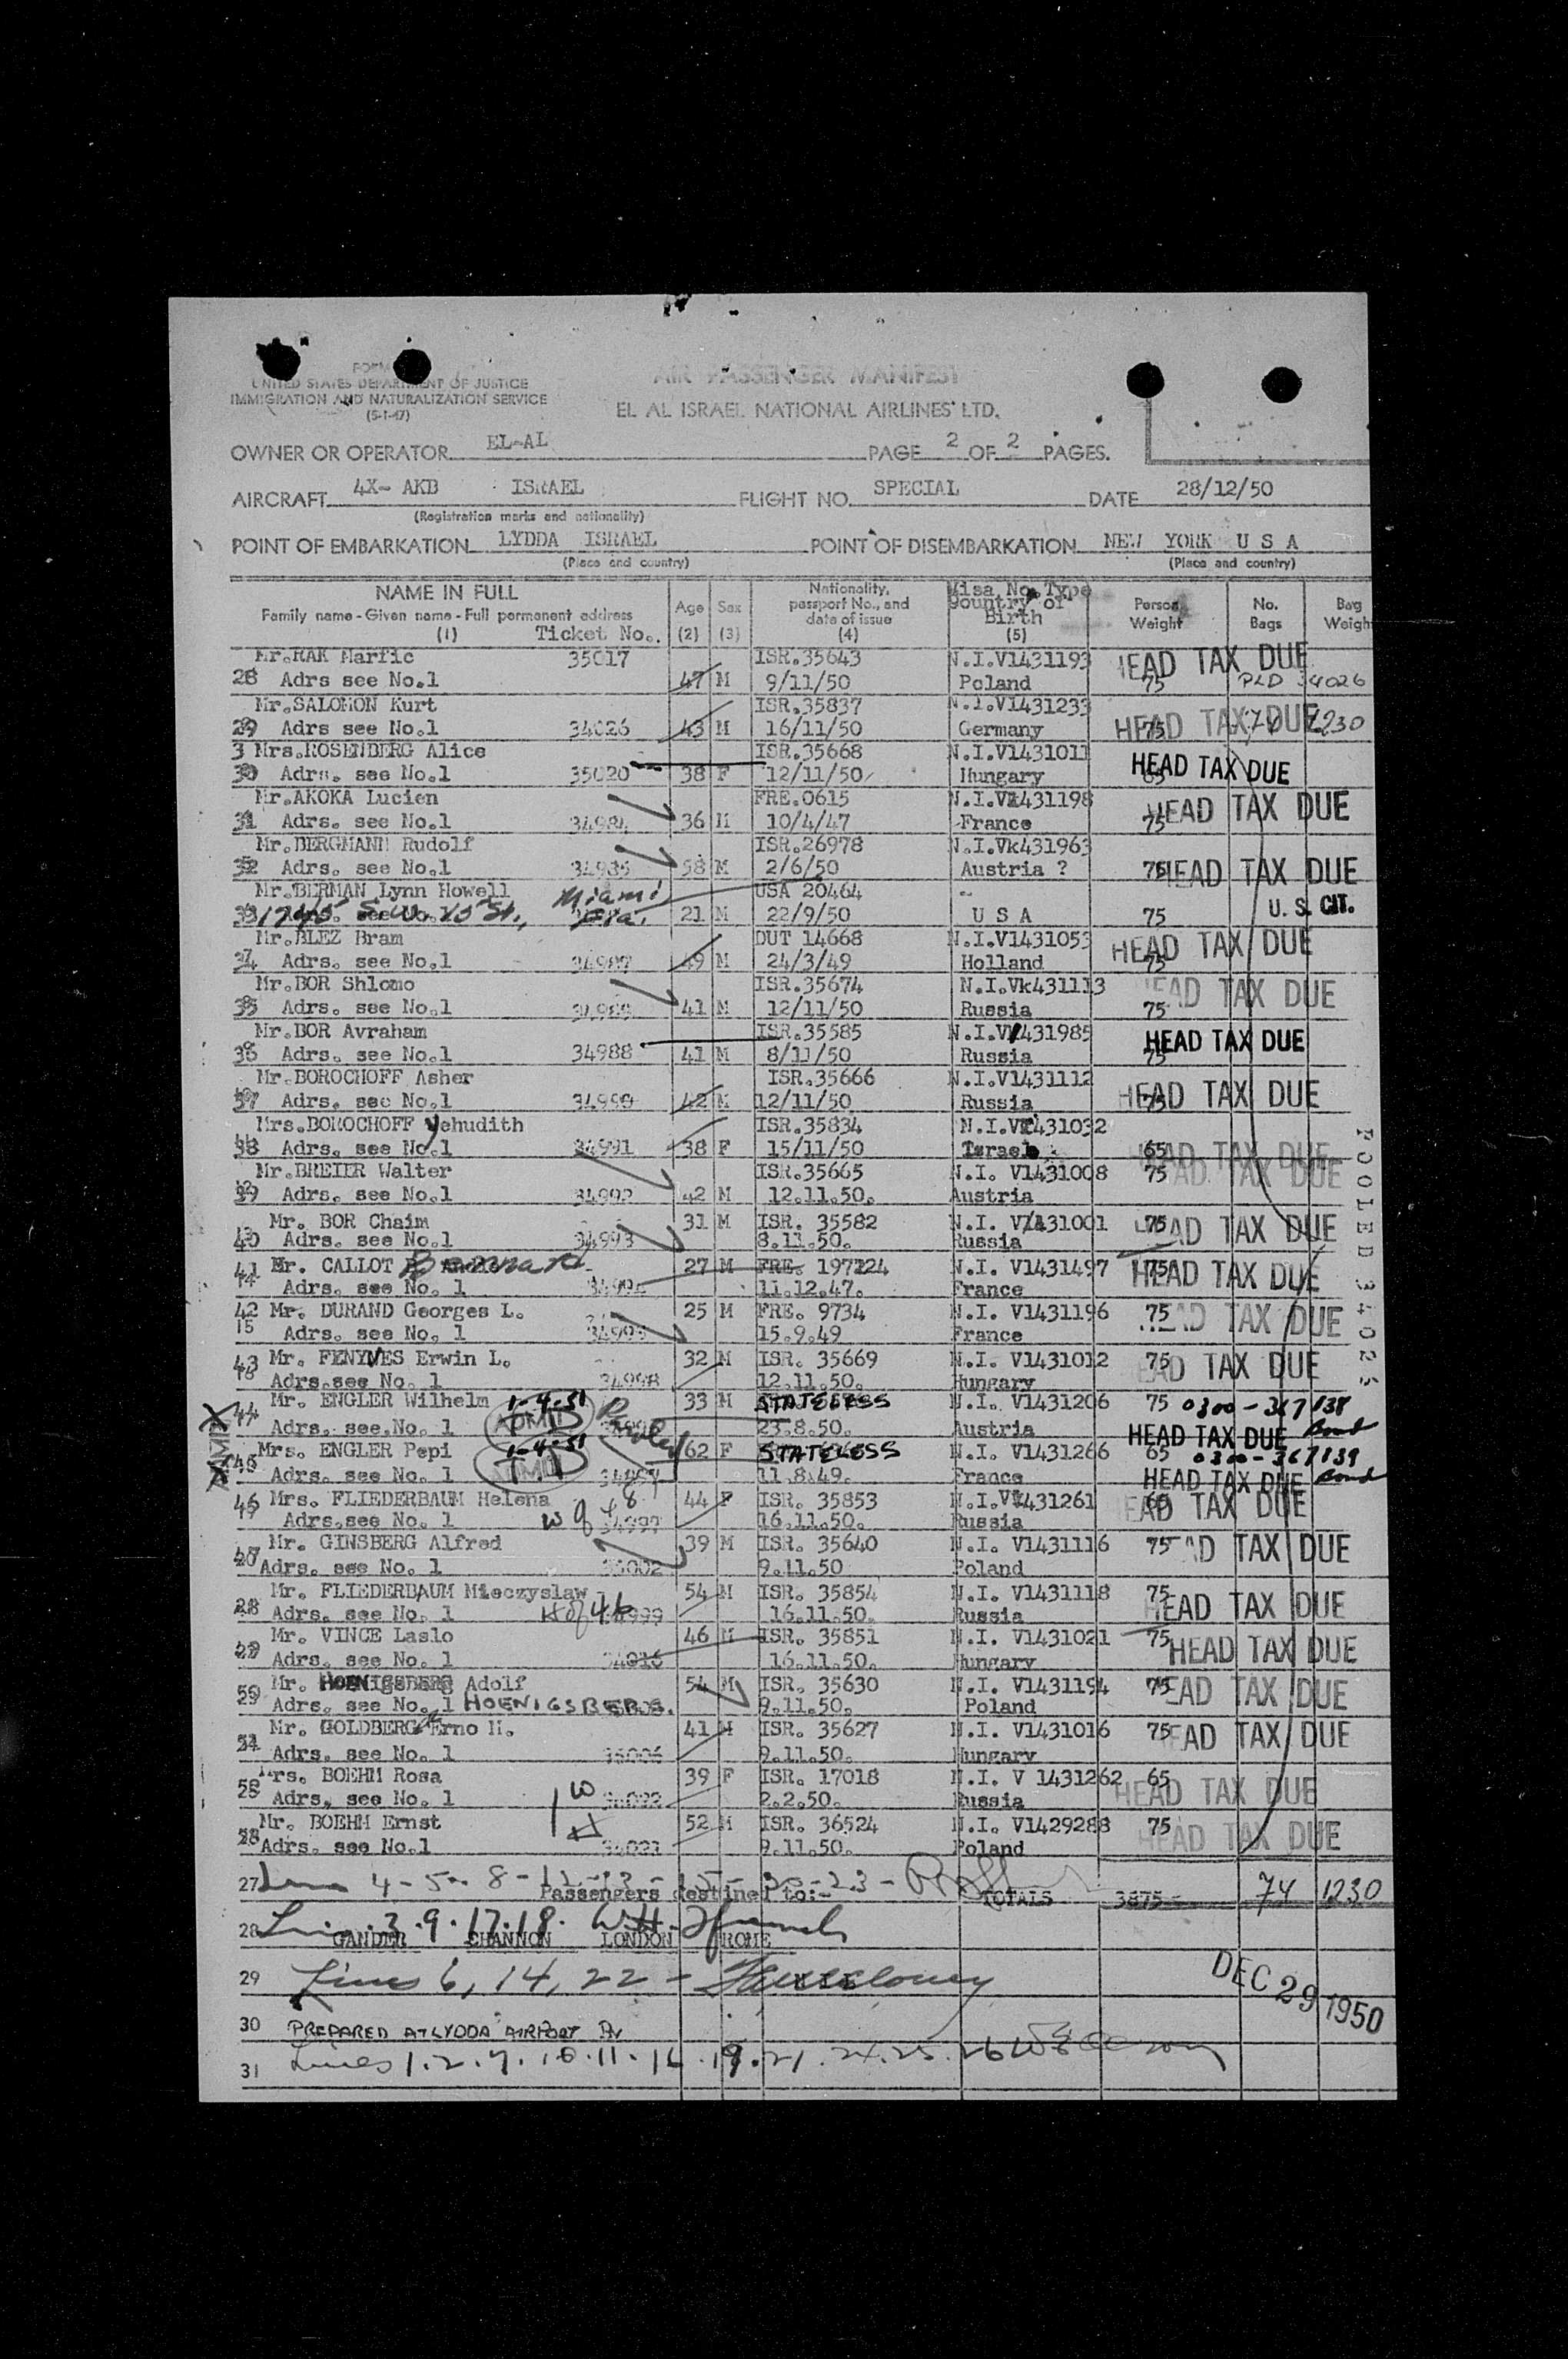 FORM
UNITED STATES DEPARTMENT OF JUSTICE
IMMIGRATION AND NATURALIZATION SERVICE
(5-1-47)
AIR PASSENGER MANIFEST
EL AL ISRAEL NATIONAL AIRLINES LTD.
OWNER OR OPERATOR EL-AL PAGE 2 OF 2 PAGES.
AIRCRAFT 4X- AKB ISRAEL FLIGHT NO. SPECIAL DATE 28/12/50
(Registration marks and nationality)
POINT OF EMBARKATION LYDDA ISRAEL POINT OF DISEMBARKATION NEW YORK U S A
(Place and country) (Place and country)
NAME IN FULL Age Sex Nationality, passport No., and date of issue Visa No. Type Country of Birth Person Weight No. Bags Bag Weigh
Family name - Given name - Full permanent address
(1) Ticket No. (2) (3) (4) (5)
Mr.RAK Marfic 35017 ISR.35643 N.I.V1431193 HEAD TAX DUE
28 Adrs see No.1 47 M 9/11/50 Poland 75 PLD 34026
Mr.SALOMON Kurt ISR.35837 N.I.V1431233
29 Adrs see No.1 34026 43 M 16/11/50 Germany 75 HEAD TAX DUE 1230
3 Mrs.ROSENBERG Alice ISR.35668 N.I.V1431011
30 Adrs. see No.1 35020 38 F 12/11/50 Hungary 65 HEAD TAX DUE
Mr.AKOKA Lucien FRE.0615 N.I.V1431198 HEAD TAX DUE
31 Adrs. see No.1 34984 36 M 10/4/47 France 75
Mr.BERGMANN Rudolf ISR.26978 N.I.Vk431963
32 Adrs. see No.1 34985 58 M 2/6/50 Austria ? 75 HEAD TAX DUE
Mr.BERMAN Lynn Howell Miami USA 20464 --
33 1745 S.W. 15 St., Fla. 21 M 22/9/50 U S A 75 U. S. CIT.
Mr.BLEZ Bram DUT 14668 N.I.V1431053 HEAD TAX DUE
34 Adrs. see No.1 34987 49 M 24/3/49 Holland 75
Mr.BOR Shlomo ISR.35674 N.I.Vk431113 HEAD TAX DUE
35 Adrs. see No.1 34989 41 M 12/11/50 Russia 75
Mr.BOR Avraham ISR.35585 N.I.V1431985 HEAD TAX DUE
36 Adrs. see No.1 34988 41 M 8/11/50 Russia 75
Mr.BOROCHOFF Asher ISR.35666 N.I.V1431112
37 Adrs. see No.1 34990 42 M 12/11/50 Russia 75 HEAD TAX DUE
Mrs.BOROCHOFF Yehudith ISR.35834 N.I.V1431032
38 Adrs. see No.1 34991 38 F 15/11/50 Israel 65 HEAD TAX DUE
Mr.BREIER Walter ISR.35665 N.I. V1431008 75 HEAD TAX DUE
39 Adrs. see No.1 34992 42 M 12.11.50. Austria
Mr. BOR Chaim 31 M ISR. 35582 N.I. V1431001 75 HEAD TAX DUE
40 Adrs. see No.1 34993 8.11.50. Russia
41 Mr. CALLOT Bernard 27 M FRE. 197224 N.I. V1431497 75 HEAD TAX DUE
Adrs. see No. 1 11.12.47. France
42 Mr. DURAND Georges L. 25 M FRE. 9734 N.I. V1431196 75 HEAD TAX DUE
15 Adrs. see No. 1 34995 15.9.49 France
43 Mr. FENYVES Erwin L. 32 M ISR. 35669 N.I. V1431012 75 HEAD TAX DUE
Adrs.see No. 1 34998 12.11.50. Hungary
44 Mr. ENGLER Wilhelm 1-4-51 33 M STATELESS N.I. V1431206 75 0300-367138
Adrs. see.No. 1 ADMD 23.8.50. Austria HEAD TAX DUE Bond
Mrs. ENGLER Pepi 1-4-51 62 F STATELESS N.I. V1431266 65 0300-367139
Adrs. see No. 1 ADMD 34997 11.8.49. France HEAD TAX DUE Bond
46 Mrs. FLIEDERBAUM Helena 44 F ISR. 35853 N.I.V1431261 65 HEAD TAX DUE
Adrs.see No. 1 w of 48 16.11.50. Russia
47 Mr. GINSBERG Alfred 39 M ISR. 35640 N.I. V1431116 75 HEAD TAX DUE
20 Adrs. see No. 1 35002 9.11.50 Poland
Mr. FLIEDERBAUM Mieczyslaw 54 M ISR. 35854 N.I. V1431118 75 HEAD TAX DUE
Adrs. see No. 1 H of 46 16.11.50. Russia
Mr. VINCE Laslo 46 M ISR. 35851 N.I. V1431021 75 HEAD TAX DUE
Adrs. see No. 1 16.11.50. Hungary
50 Mr. HOENIGSBERG Adolf 54 M ISR. 35630 N.I. V1431194 75 HEAD TAX DUE
Adrs. see No. 1 HOENIGSBERG. 9.11.50. Poland
Mr. GOLDBERG Erno H. 41 M ISR. 35627 N.I. V1431016 75 HEAD TAX DUE
Adrs. see No. 1 35006 9.11.50. Hungary
Mrs. BOEHM Rosa 39 F ISR. 17018 N.I. V 1431262 65
Adrs. see No. 1 W 2.2.50. Russia HEAD TAX DUE
Mr. BOEHM Ernst H 52 M ISR. 36524 N.I. V1429288 75
Adrs. see No.1 9.11.50. Poland HEAD TAX DUE
POOLED 34026
27 Passengers destined to:- TOTALS 3875 74 1230
28 GANDER SHANNON LONDON ROME
29 Lines 6, 14, 22 -
DEC 29 1950
30 PREPARED AT LYDDA AIRPORT
31 Lines 1.2.7.10.11.16.19.21.24.25.26